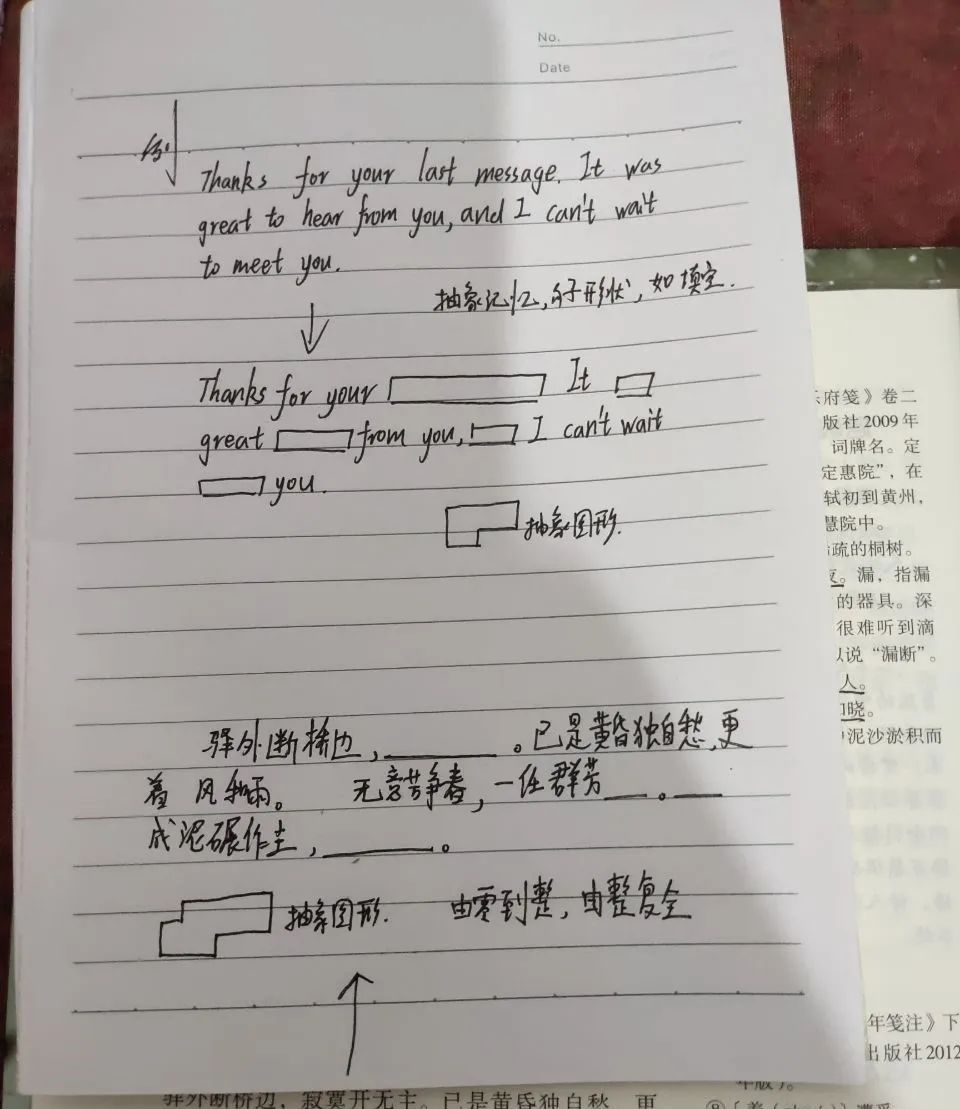 No.
Date
例:
Thanks for your last message. It was
great to hear from you, and I can't wait
to meet you.
抽象记忆,句子形状,如填空.
Thanks for your It
great from you, I can't wait
you.
抽象图形.
驿外断桥边,______。已是黄昏独自愁,更
着风和雨。 无意苦争春,一任群芳__。__
成泥碾作尘,______。
抽象图形. 由零到整,由整复全
乐府笺》卷二
版社2009年
词牌名。定
定惠院”,在
轼初到黄州,
慧院中。
疏的桐树。
漏,指漏
的器具。深
很难听到滴
以说“漏断”。
人。
和晓。
泥沙淤积而
年笺注》下
出版社2012
年版)。
驿外断桥边,寂寞开无主。已是黄昏独自愁,更